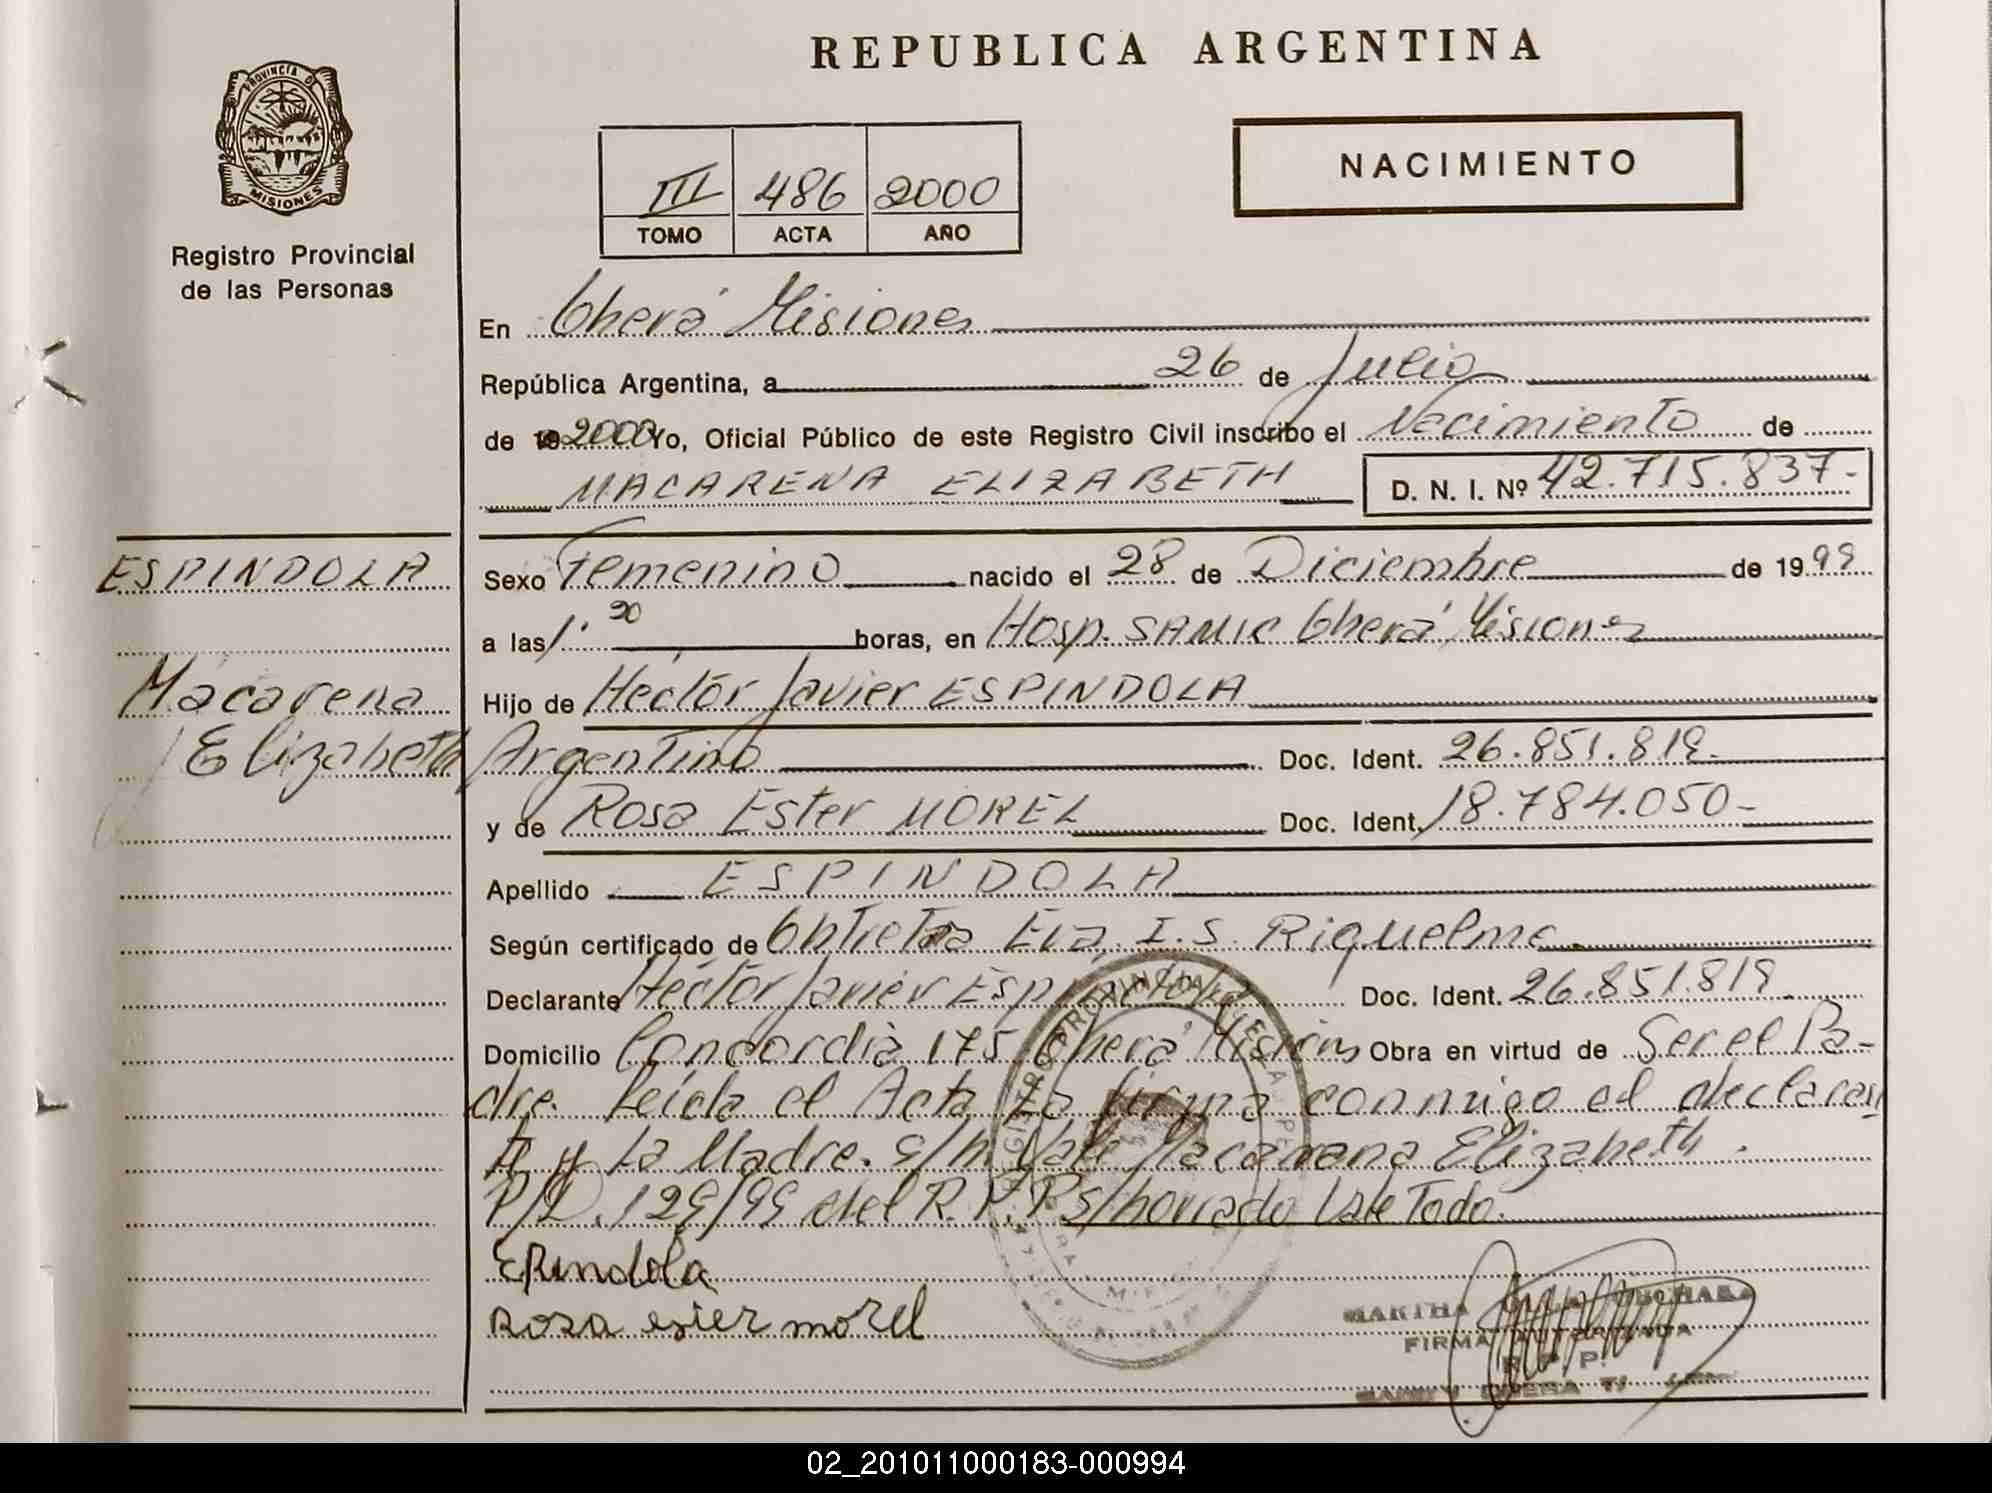 REPUBLICA ARGENTINA
PROVINCIA DE
MISIONES
Registro Provincial
de las Personas
III 486 2000
TOMO ACTA AÑO
NACIMIENTO
En Oberá Misiones
República Argentina, a 26 de Julio
de 19 2000 Yo, Oficial Público de este Registro Civil inscribo el Nacimiento de
MACARENA ELIZABETH D. N. I. Nº 42.715.837.-
ESPINDOLA
Macarena
Elizabeth
Sexo Femenino nacido el 28 de Diciembre de 1999
a las 1.30 horas, en Hosp. SAMIC Oberá Misiones
Hijo de Héctor Javier ESPINDOLA
Argentino Doc. Ident. 26.851.819.
y de Rosa Ester MOREL Doc. Ident. 18.784.050-
Apellido ESPINDOLA
Según certificado de Obtetra Eva I.S. Riquelme
Declarante Héctor Javier Espindola Doc. Ident. 26.851.819
Domicilio Concordia 175 Oberá Misiones Obra en virtud de Ser el Pa-
dre. Leída el Acta La firma conmigo el declaran
te y La Madre. E/n Vale Macarena Elizabeth.
P/D. 129/99 del R.P.P. S/borrado Vale Todo.
Epindola
Rosa ester morel
MARTHA
FIRMA AUTORIZADA
R. P. P.
OBERA
02_201011000183-000994